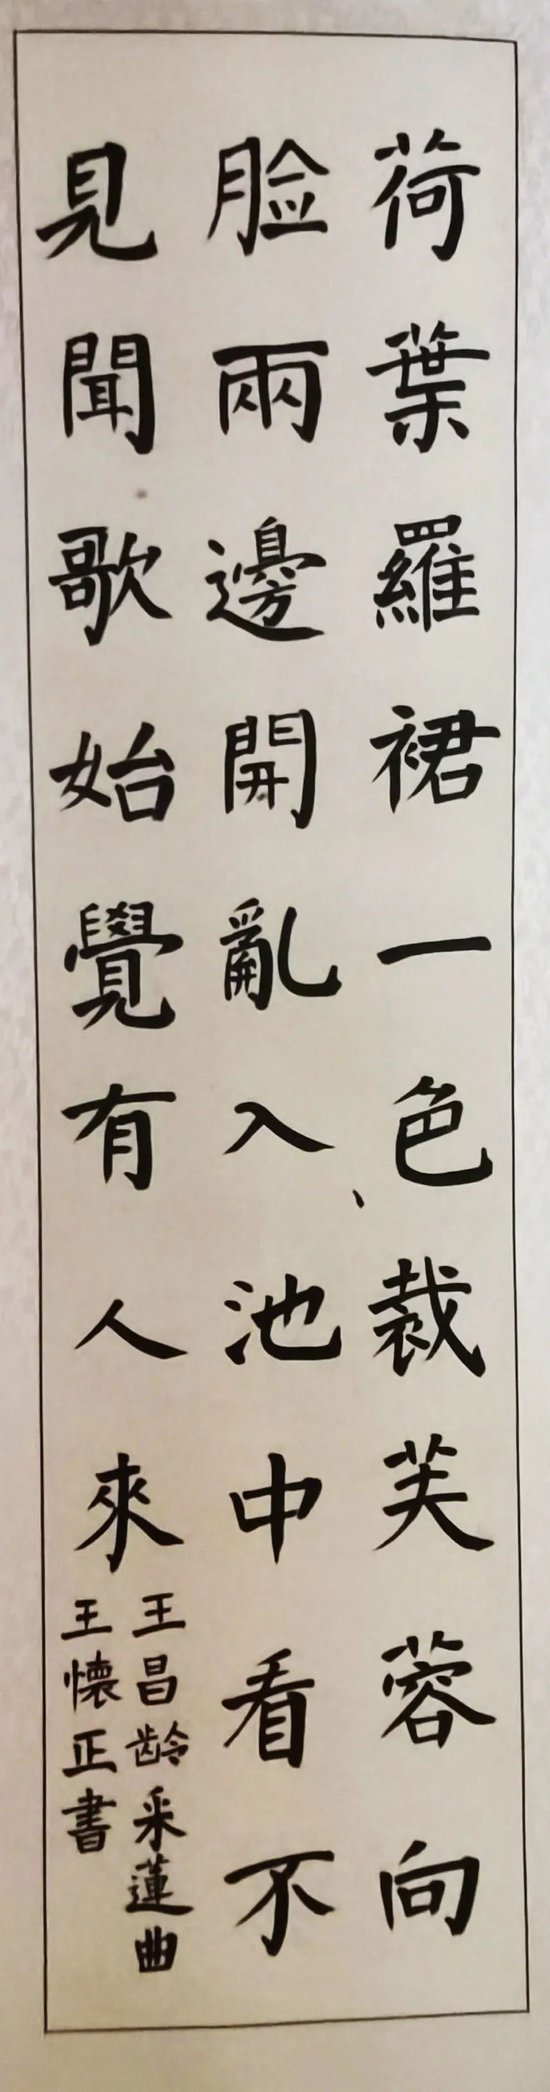 荷葉羅裙一色裁芙蓉向
脸兩邊開亂入池中看不
見聞歌始覺有人來
王昌龄采蓮曲
王懷正書